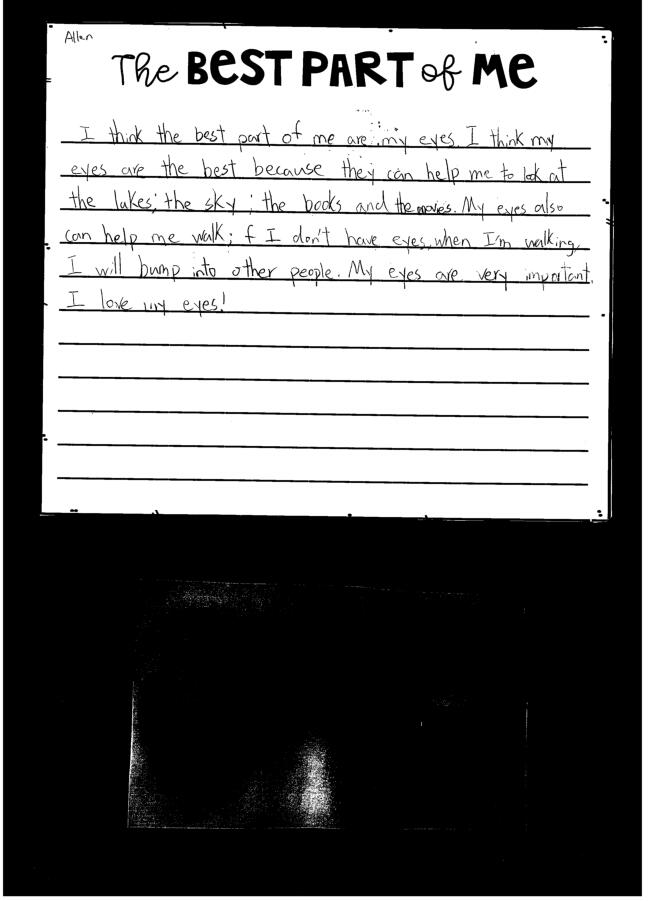 Allen
The BEST PART of ME
I think the best part of me are my eyes. I think my
eyes are the best because they can help me to look at
the lakes; the sky; the books and the movies. My eyes also
can help me walk; if I don't have eyes, when I'm walking,
I will bump into other people. My eyes are very important.
I love my eyes!